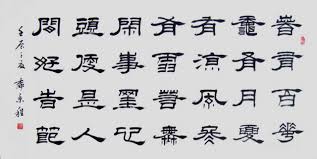 春有百花
秋有月夏
有涼風冬
有雪若無
閑事罣心
頭便是人
間好旹節
壬辰之夏